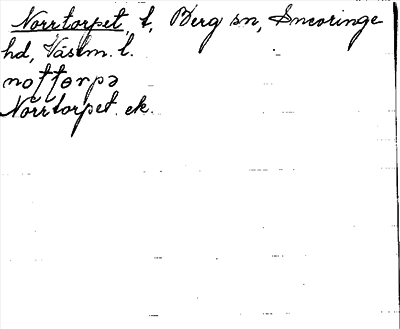 Norrtorpet, t, Berg sn, Snevringe
hd, Västm. l.
nottorpə
Norrtorpet. ek.